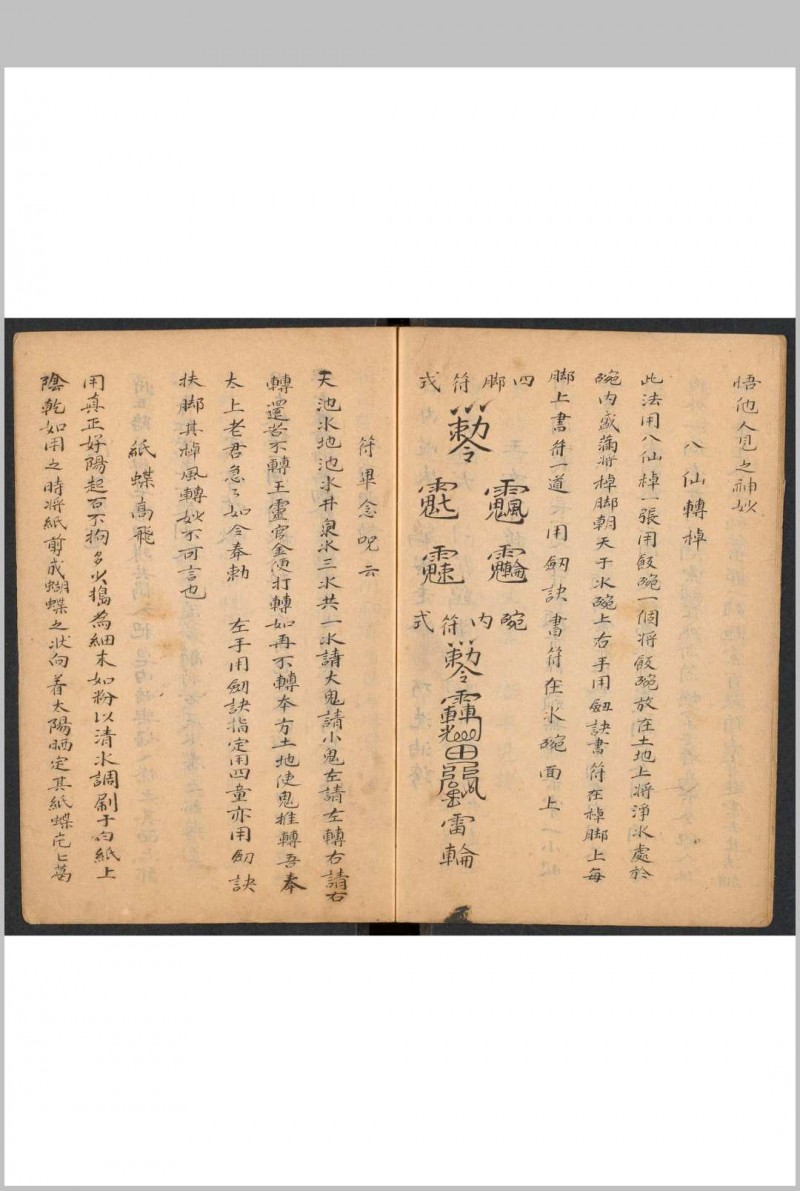 悟他人見之神妙
八仙轉棹
此法用八仙棹一張用飯碗一個將飯碗放在土地上將淨水處於
碗內盛滿將棹脚朝天于水碗上右手用劔訣書符在棹脚上每
脚上書符一道 用劔訣書符在水碗面上
四脚符式
勅令
碗內符式
勅令
雷
輪
符畢念呪云
天池水地池水井泉水三水共一水請大鬼請小鬼左請左轉右請右
轉還若不轉王靈官金便打轉如再不轉本方土地使鬼推轉吾奉
太上老君急々如令奉勅 左手用劔訣指定用四童亦用劔訣
扶脚其棹風轉妙不可言也
紙蝶高飛
用真正好陽起石不拘多少搗為細末如粉以清水調刷于白紙上
陰乾如用之時將紙剪成蝴蝶之狀向着太陽晒定其紙蝶